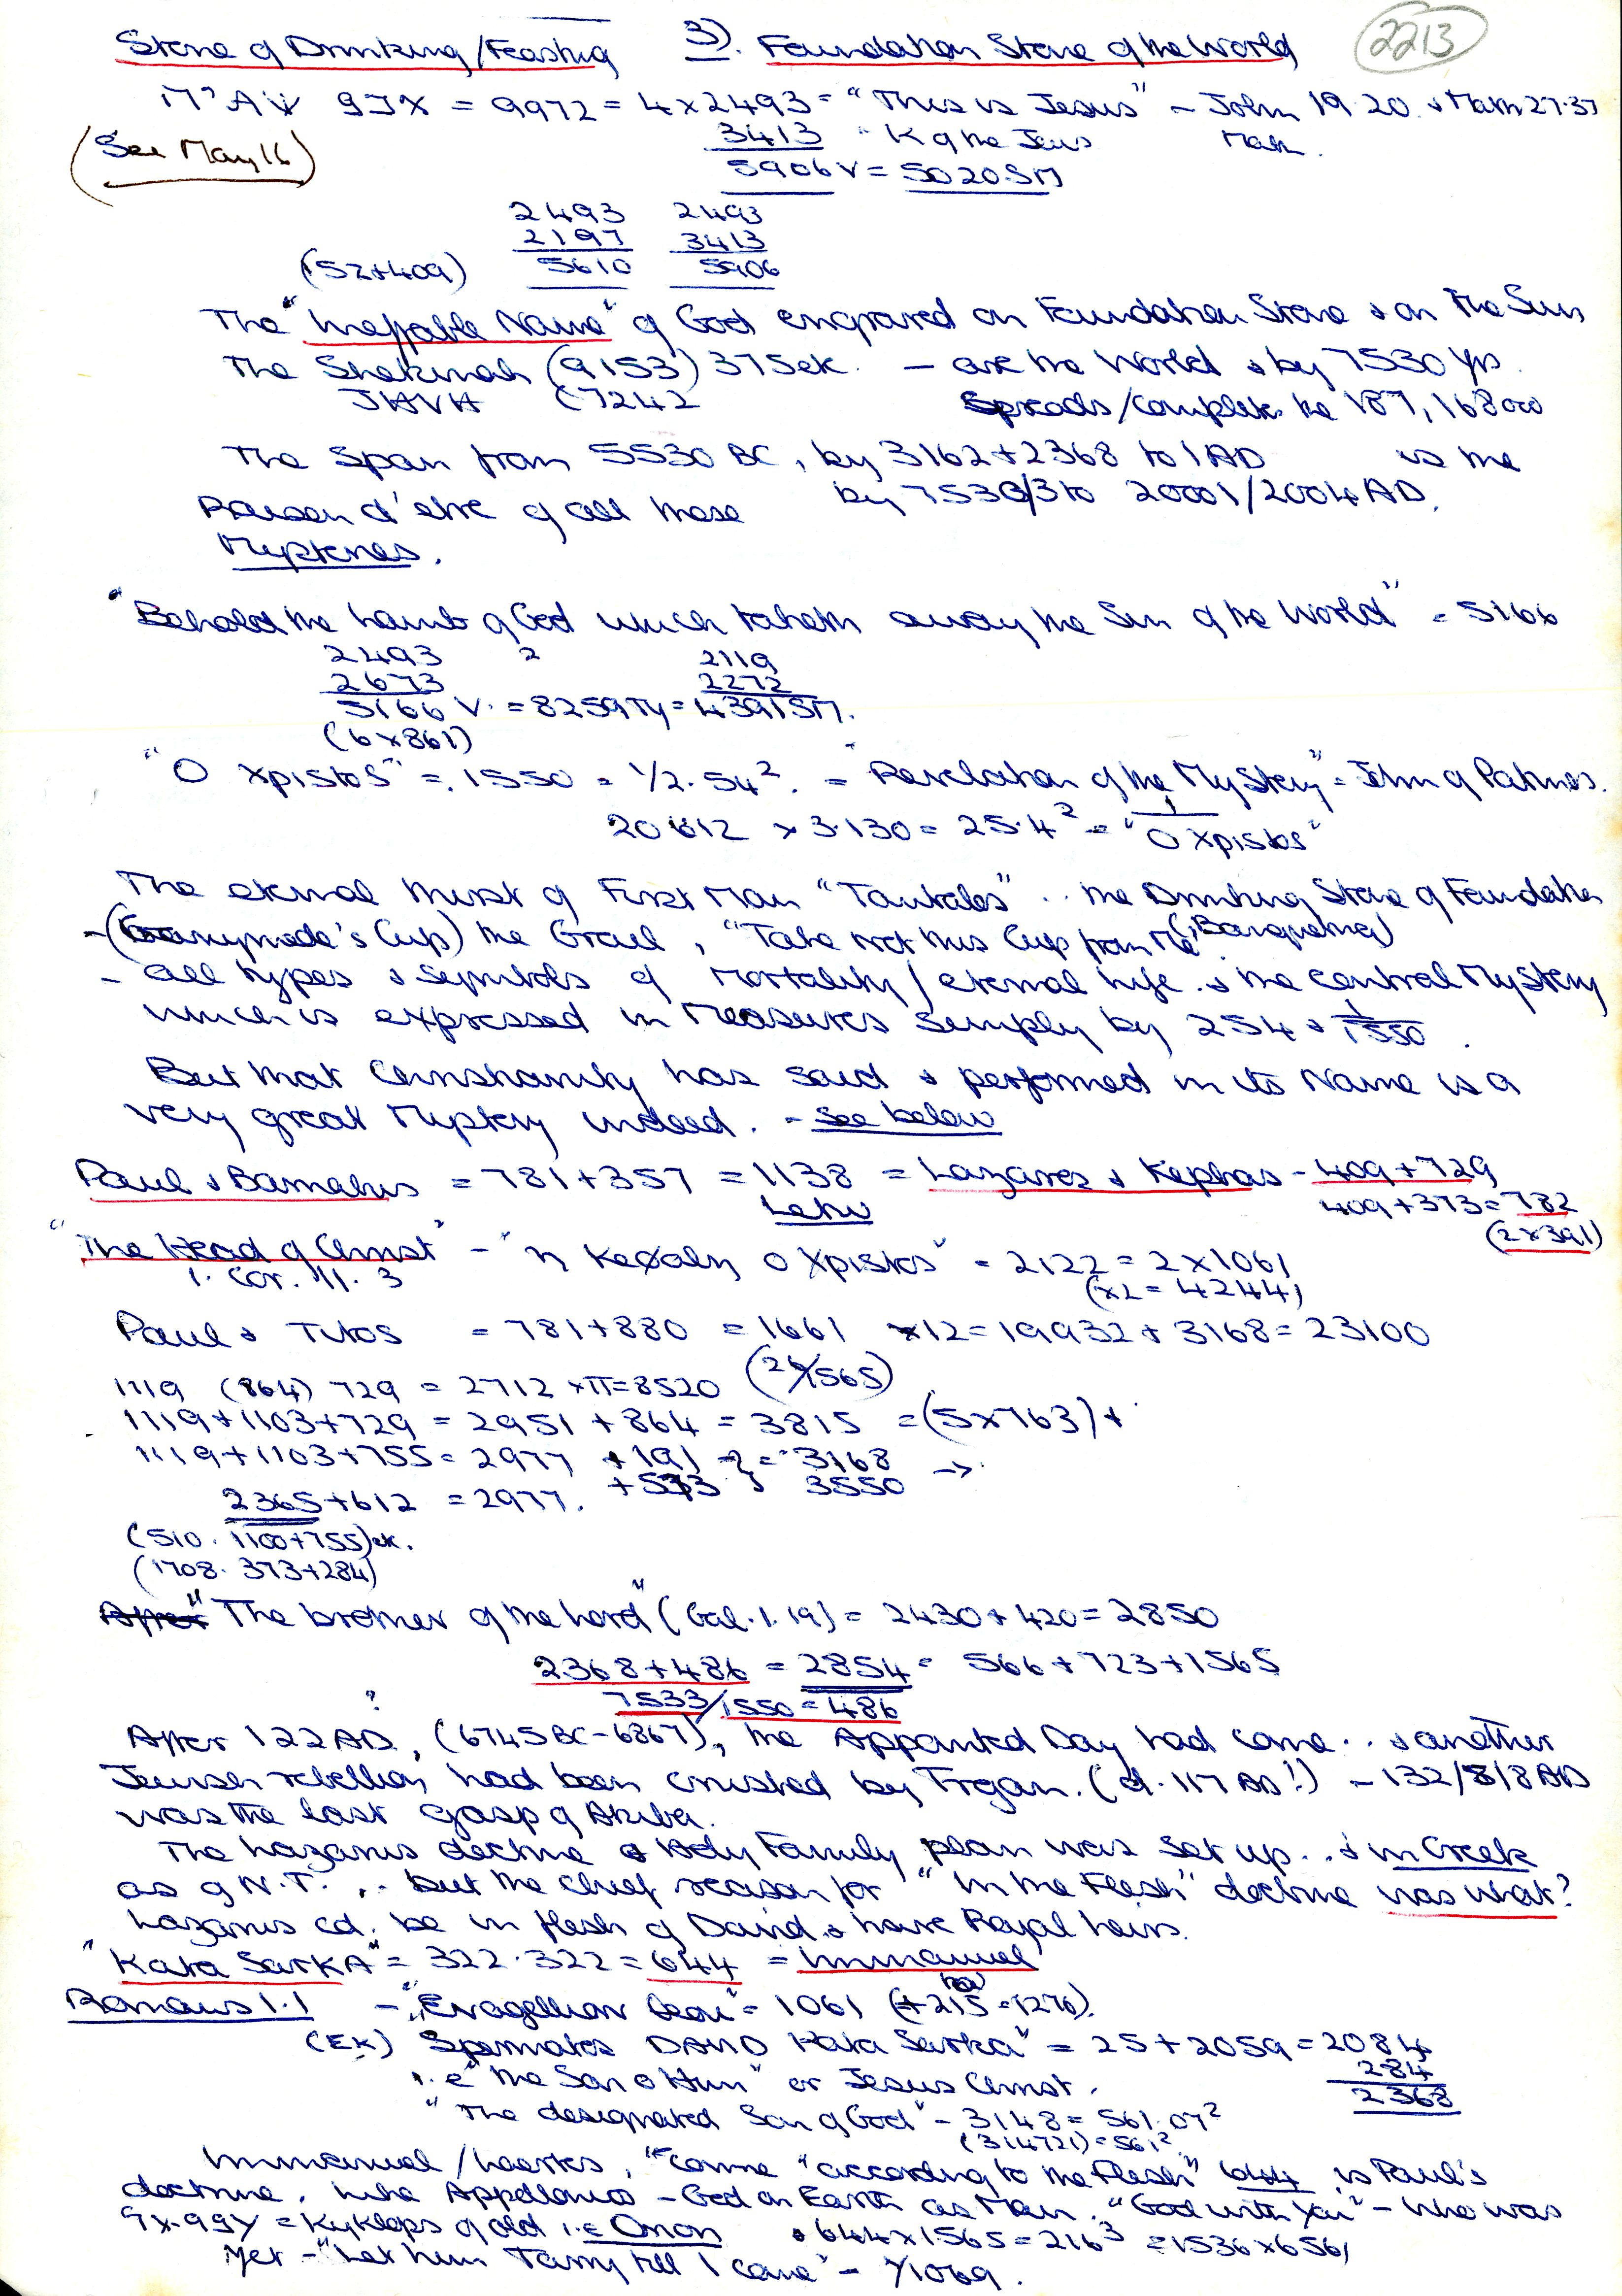 Stone of Drinking/Feasting 3). Foundation Stone of the World 2213
= 9972 = 4x2493 = "This is Jesus" - John 19.20. & Math 27.37
(See May 16) 3413 " K of the Jews Math.
5906 V = 5020.SM
2493 2493
2197 3413
(52+409) 5610 5906
The "Ineffable Name" of God engraved on Foundation Stone & on The Sun
The Shekinah (9153) 375ek. - are the World & by 7530 yrs.
JHVH (7242 Spreads/completes the 187,168000
The Span from 5530 BC, by 3162+2368 to 1AD is the
Raison d'etre of all these by 7530/3 to 20001/2004 AD.
Mysteries.
"Behold the Lamb of God which taketh away the Sin of the World" = 5166
2493 2 2119
2673 2272
5166 V. = 8259Ty = 4391SM.
(6x861)
"O Xpistos" = 1550 = 1/2.54². = "Revelation of the Mystery" = John of Patmos.
20612 x 3.130 = 25.4² = "O Xpistos"
The eternal thirst of First Man "Tantalos" .. the Drinking Stone of Foundation
- (Ganymede's Cup) the Grail, "Take not this Cup from Me" (, Banqueting)
- all types & symbols of Mortality/eternal life. & the central Mystery
which is expressed in Measures simply by 254 & 1/1550.
But what Christianity has said & performed in its Name is a
very great Mystery indeed. - See below
Paul & Barnabus = 781+357 = 1138 = Lazarus & Kephas - 409+729
409+373=782
(2x391)
"The Head of Christ" - "η Keφαλη o Xpistos" = 2122 = 2x1061
1. Cor. 11. 3 (x2 = 4244)
Paul & Titos = 781+880 = 1661 x12 = 19932 + 3168 = 23100
1119 (864) 729 = 2712 xπ=8520 (26/1565)
1119+1103+729 = 2951 + 864 = 3815 = (5x763)+
1119+1103+755 = 2977 +191 = 3168 →
2365+612 = 2977. +573 3550
(510. 1100+755)ek.
(1708. 373+284)
After "The brother of the Lord" (Gal.1.19) = 2430+420 = 2850
2368+486 = 2854 = 566+723+1565
7533/1550 = 486
After 122AD, (6745BC-6867)?, the Appointed Day had come .. & another
Jewish rebellion had been crushed by Trajan. (d. 117 AD!) - 132/8/8 AD
was the last gasp of Akiba.
The Lazarus doctrine & Holy Family plan was set up .. & in Greek
as of N.T. .. but the chief reason for "In the Flesh" doctrine was what?
Lazarus cd. be in flesh of David & have Royal heirs.
"Kata Sarka" = 322.322 = 644 = Immanuel
Romans 1.1 - "Evagellion Theou" = 1061 (+215 = 1276).
(Ek) Spermatos DAVID Kata Sarka" = 25+2059 = 2084
i.e "the Son o Hun" or Jesus Christ. 284
"The designated Son of God" - 3148 = 561.07² 2368
(314721) = 561².
Immanuel/Laertes, "Come "according to the Flesh" 644 is Paul's
doctrine. Like Appellonius - God on Earth as Man. "God with You" - who was
= Kyklops of old i.e Onon & 644x1565 = 216³ = 1536x6561
Yet - "Let him Tarry till I come" - 1/1069.